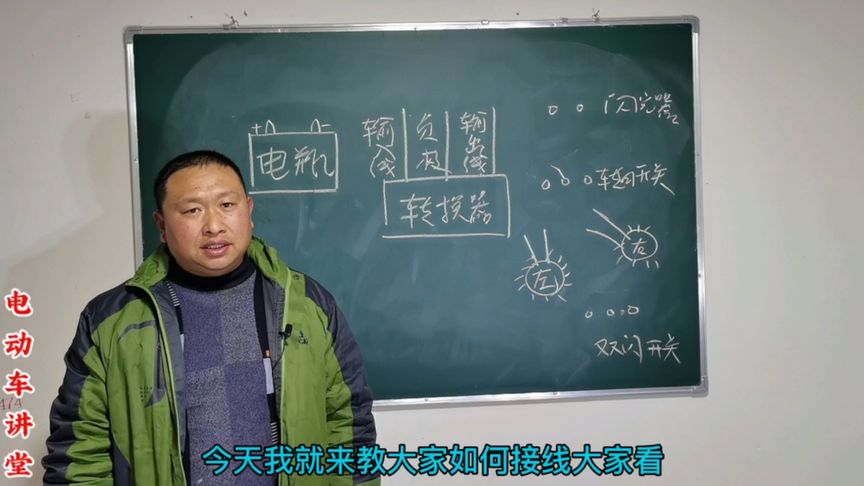 + -
电瓶
输入线
负极
输出线
转换器
闪光器
转向开关
左
右
双闪开关
电动车讲堂
今天我就来教大家如何接线大家看